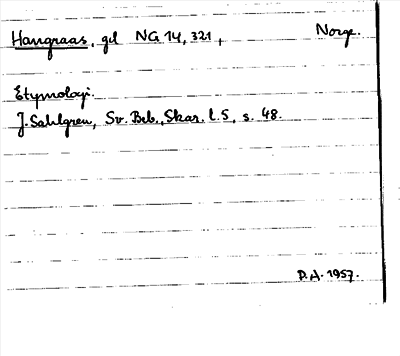 Haugraas, gd NG 14, 321, Norge.
Etymologi.
J. Sahlgren, Sv. Beb., Skar. l. 5, s. 48.
D.A. 1957.